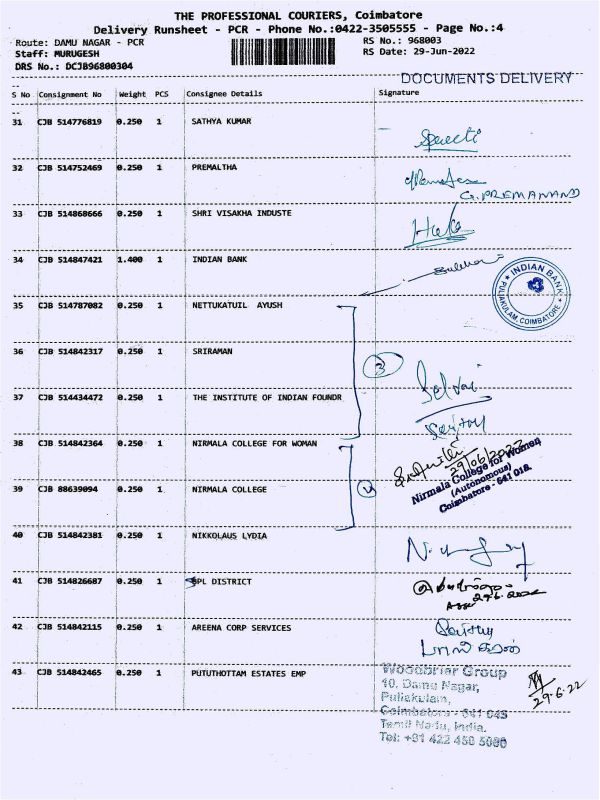 THE PROFESSIONAL COURIERS, Coimbatore
Delivery Runsheet - PCR - Phone No.:0422-3505555 - Page No.:4
Route: DAMU NAGAR - PCR RS No.: 968003
Staff: MURUGESH RS Date: 29-Jun-2022
DRS No.: DCJB96800304
DOCUMENTS DELIVERY
S No Consignment No Weight PCS Consignee Details Signature
31 CJB 514776819 0.250 1 SATHYA KUMAR
32 CJB 514752469 0.250 1 PREMALTHA
G. PREMANAND
33 CJB 514868666 0.250 1 SHRI VISAKHA INDUSTE
34 CJB 514847421 1.400 1 INDIAN BANK
INDIAN BANK
PULIAKULAM, COIMBATORE
35 CJB 514787082 0.250 1 NETTUKATUIL AYUSH
36 CJB 514842317 0.250 1 SRIRAMAN
3
37 CJB 514434472 0.250 1 THE INSTITUTE OF INDIAN FOUNDR
38 CJB 514842364 0.250 1 NIRMALA COLLEGE FOR WOMAN
29/06/2022
Nirmala College for Women
(Autonomous)
Coimbatore - 641 018.
39 CJB 88639094 0.250 1 NIRMALA COLLEGE
40 CJB 514842381 0.250 1 NIKKOLAUS LYDIA
41 CJB 514826687 0.250 1 SPL DISTRICT
29.6.2022
42 CJB 514842115 0.250 1 AREENA CORP SERVICES
43 CJB 514842465 0.250 1 PUTUTHOTTAM ESTATES EMP
Woodbriar Group
10, Damu Nagar,
Puliakulam,
Coimbatore - 641 045
Tamil Nadu, India.
Tel: +91 422 450 5000
29.6.22